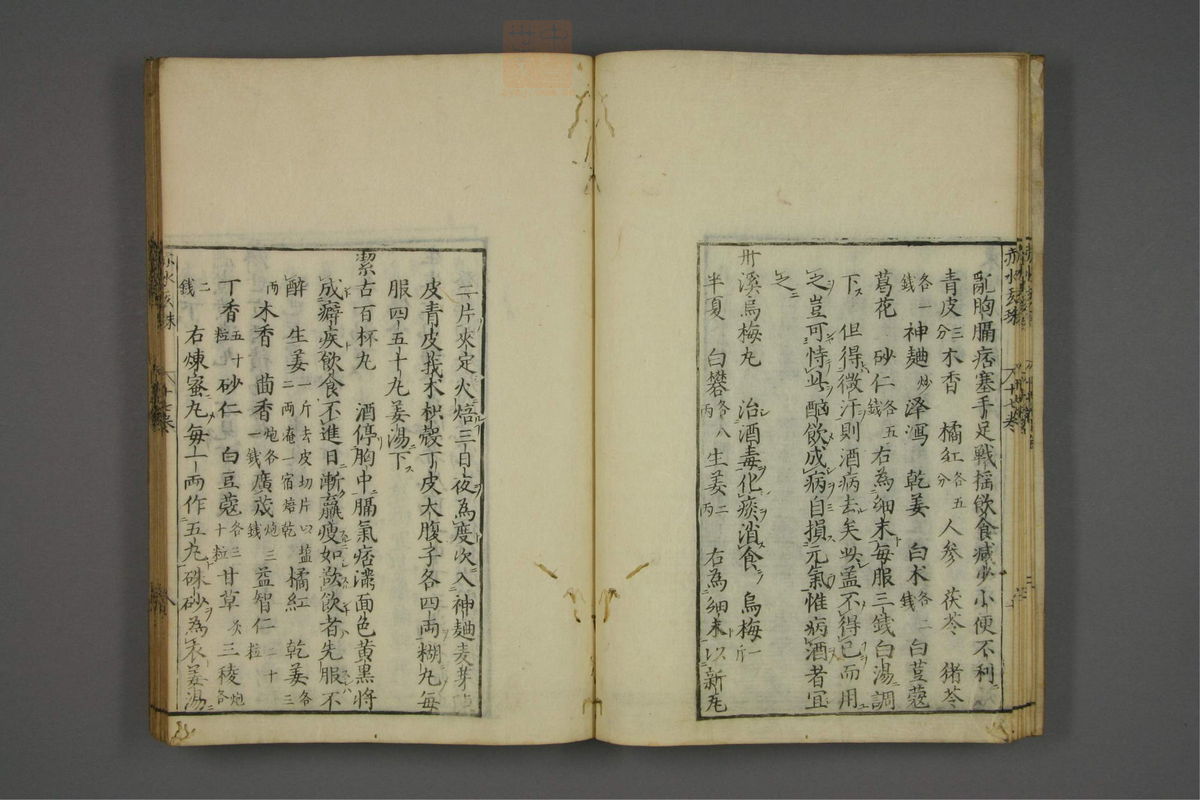 亂胸膈痞塞手足戰搖飲食減少小便不利
青皮三分木香　橘紅各五分人參　茯苓　猪苓
各一錢神麯炒澤瀉　乾姜　白朮各二錢白荳蔻
葛花　砂仁各五錢右為細末每服三錢白湯調
下　但得微汗則酒病去矣此蓋不得已而用
之豈可恃此酗飲成病自損元氣惟病酒者宜
之
丹溪烏梅丸　治酒毒化痰消食　烏梅一斤
半夏　白礬各八兩生姜二兩右為細末以新瓦
二片夾定火焙三日夜為度次入神麯麦芽
皮青皮莪朮枳殼丁皮大腹子各四両糊丸每
服四五十丸姜湯下
潔古百杯丸　酒停胸中膈氣痞滿面色黃黑將
成癖疾飲食不進日漸羸瘦如欲飲者先服不
醉　生姜一斤去皮切片以塩二両淹一宿焙乾橘紅　乾姜各三
両木香　茴香炮各一錢廣茂炮三錢益智仁二十粒
丁香五十粒砂仁　白豆蔻各三十粒甘草炙三稜炮各
二錢右煉蜜丸每一両作五丸硃砂為衣姜湯
赤水玄珠
十七卷